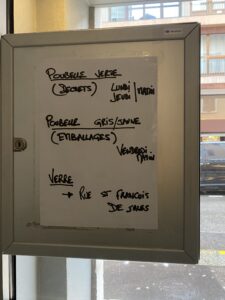 POUBELLE VERTE
(DECHETS) LUNDI / MATIN
JEUDI
POUBELLE GRIS/JAUNE
(EMBALLAGES)
VENDREDI
MATIN
VERRE
→ RUE ST FRANCOIS
DE SALES